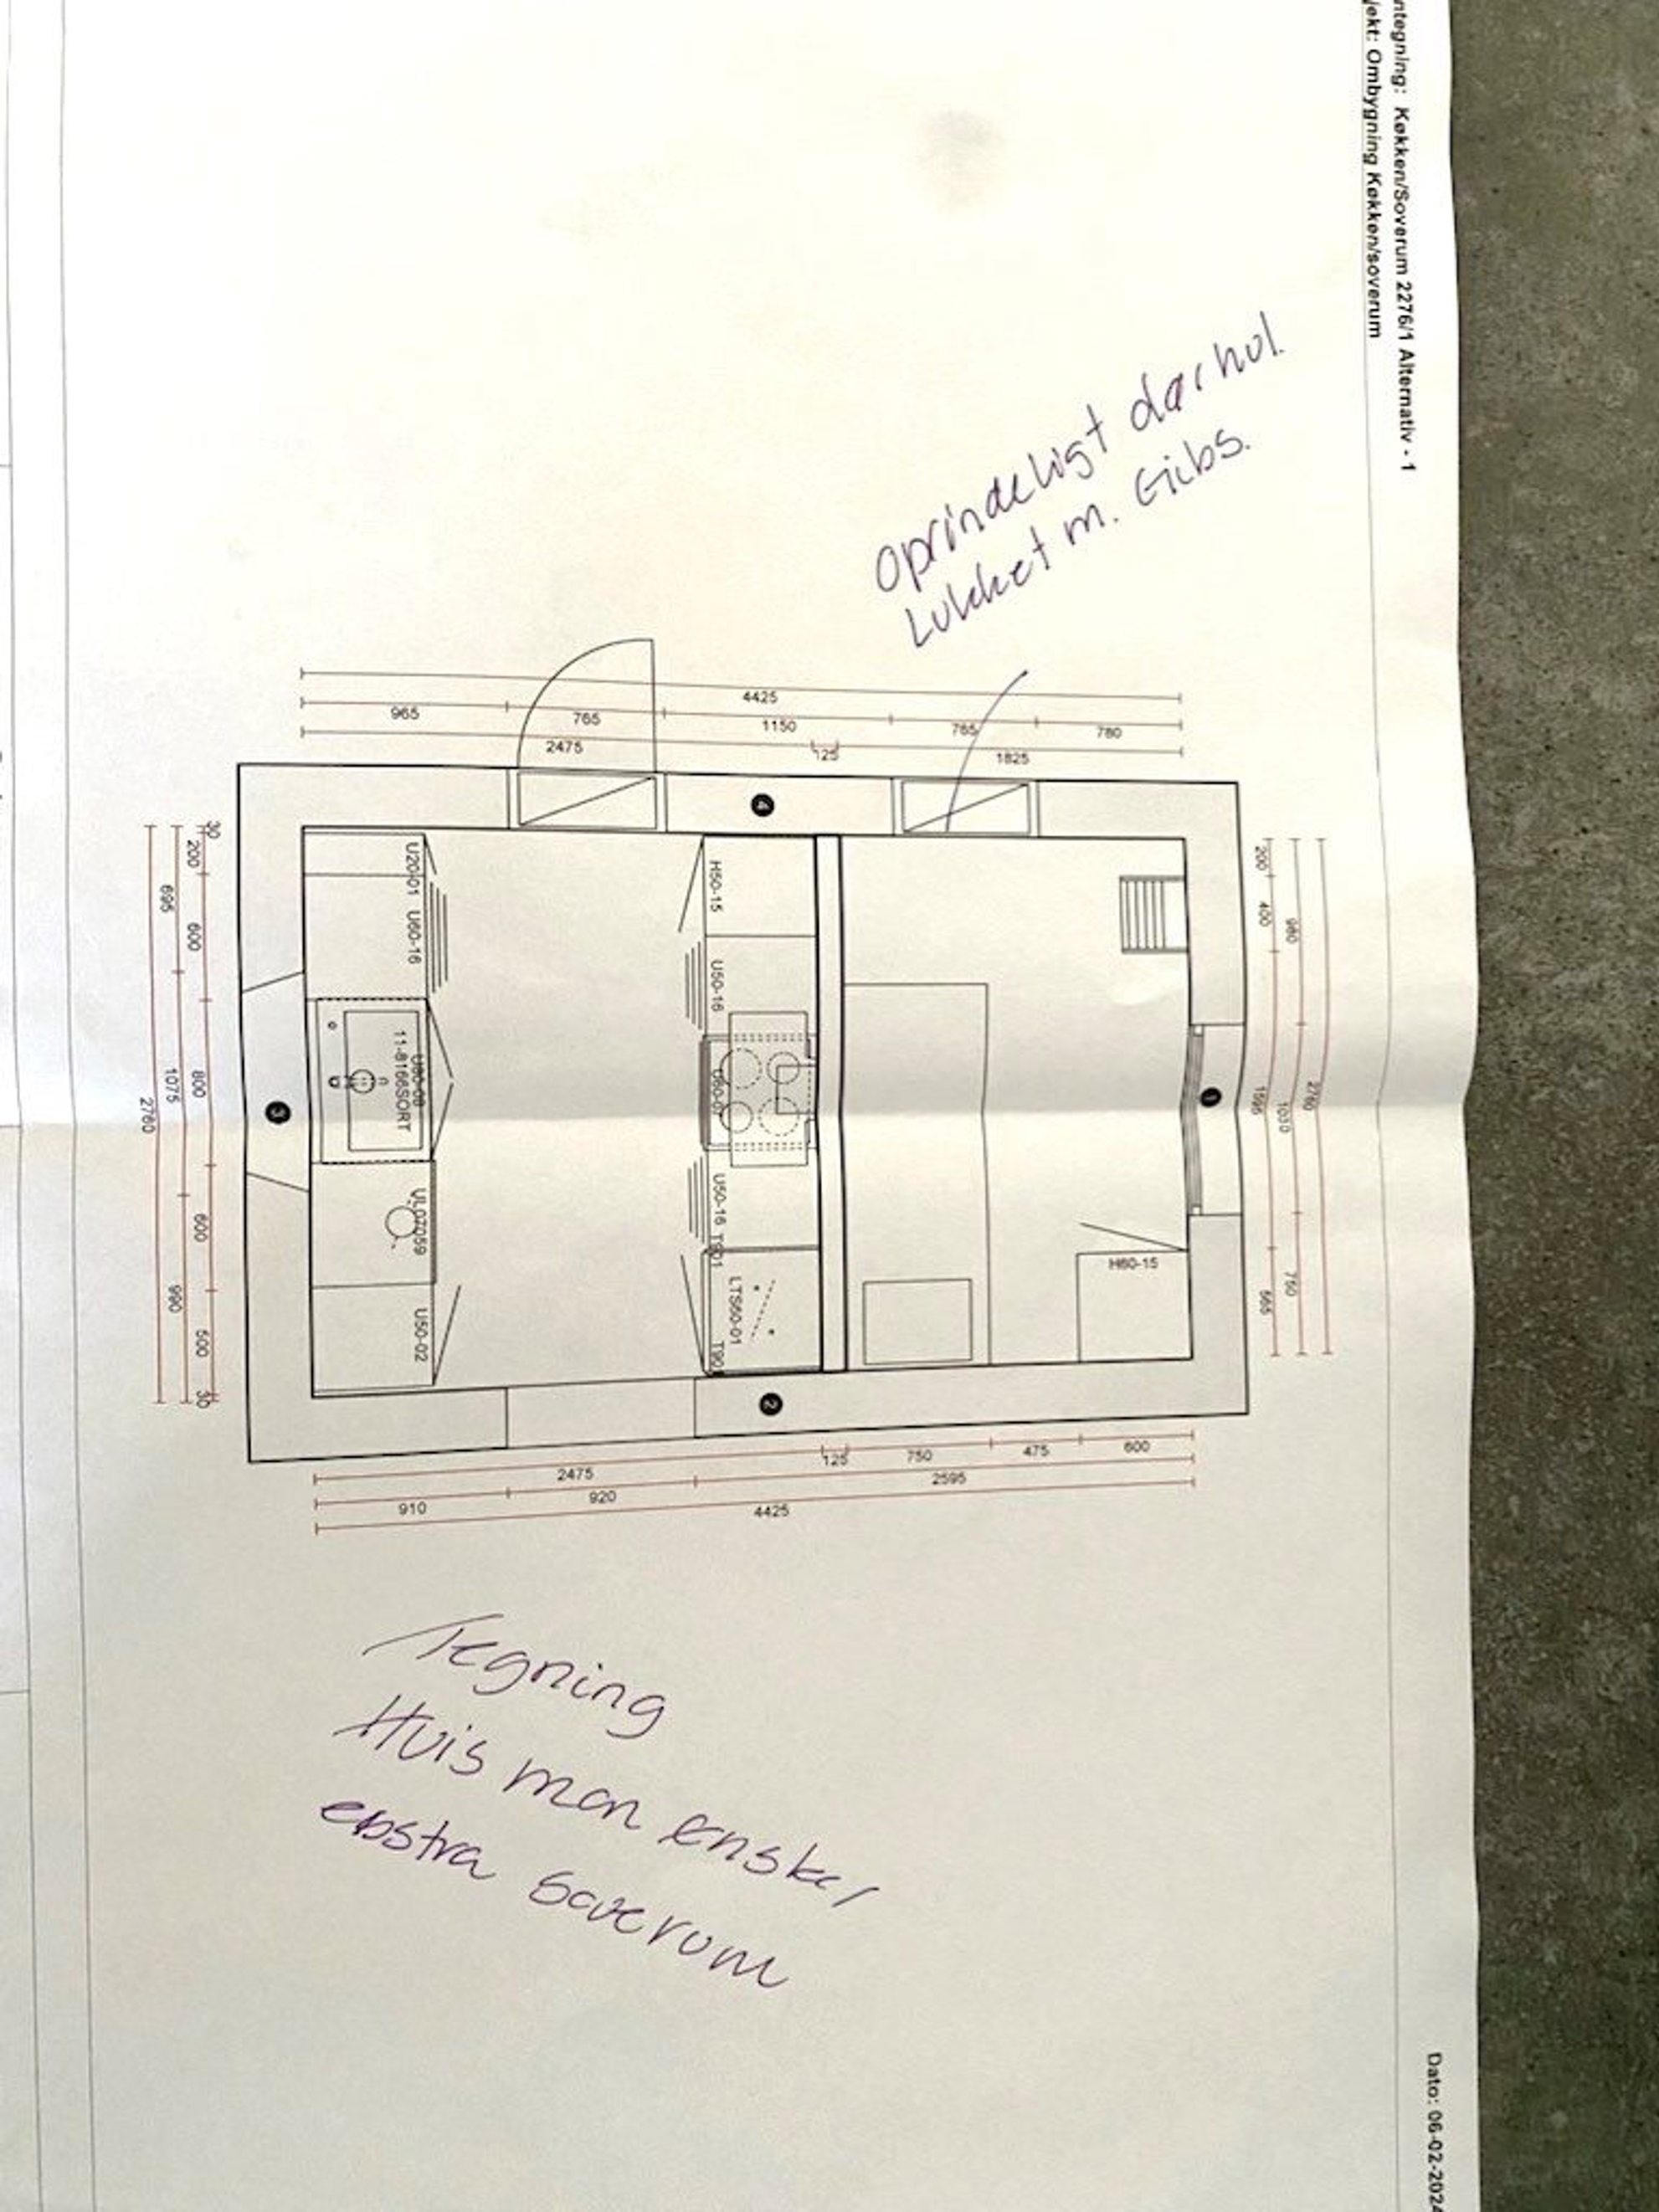 ntegning: Køkken/Soverum 2276/1 Alternativ - 1
jekt: Ombygning Køkken/soverum
Dato: 06-02-2024
Oprindeligt dørhul.
Lukket m. Gibs.
4425
965
765
1150
765
780
2475
125
1825
4
30
200
695
600
800
1075
2760
600
990
500
30
U20-01
U60-16
U80-08
11-8166SORT
UL07059
U50-02
3
H50-15
U50-16
U80-07
U50-16
T901
LTS60-01
T901
H60-15
1
200
400
980
1595
1030
2760
750
565
2
125
750
475
600
2475
2595
910
920
4425
Tegning
Hvis man ønsker
ekstra soverum